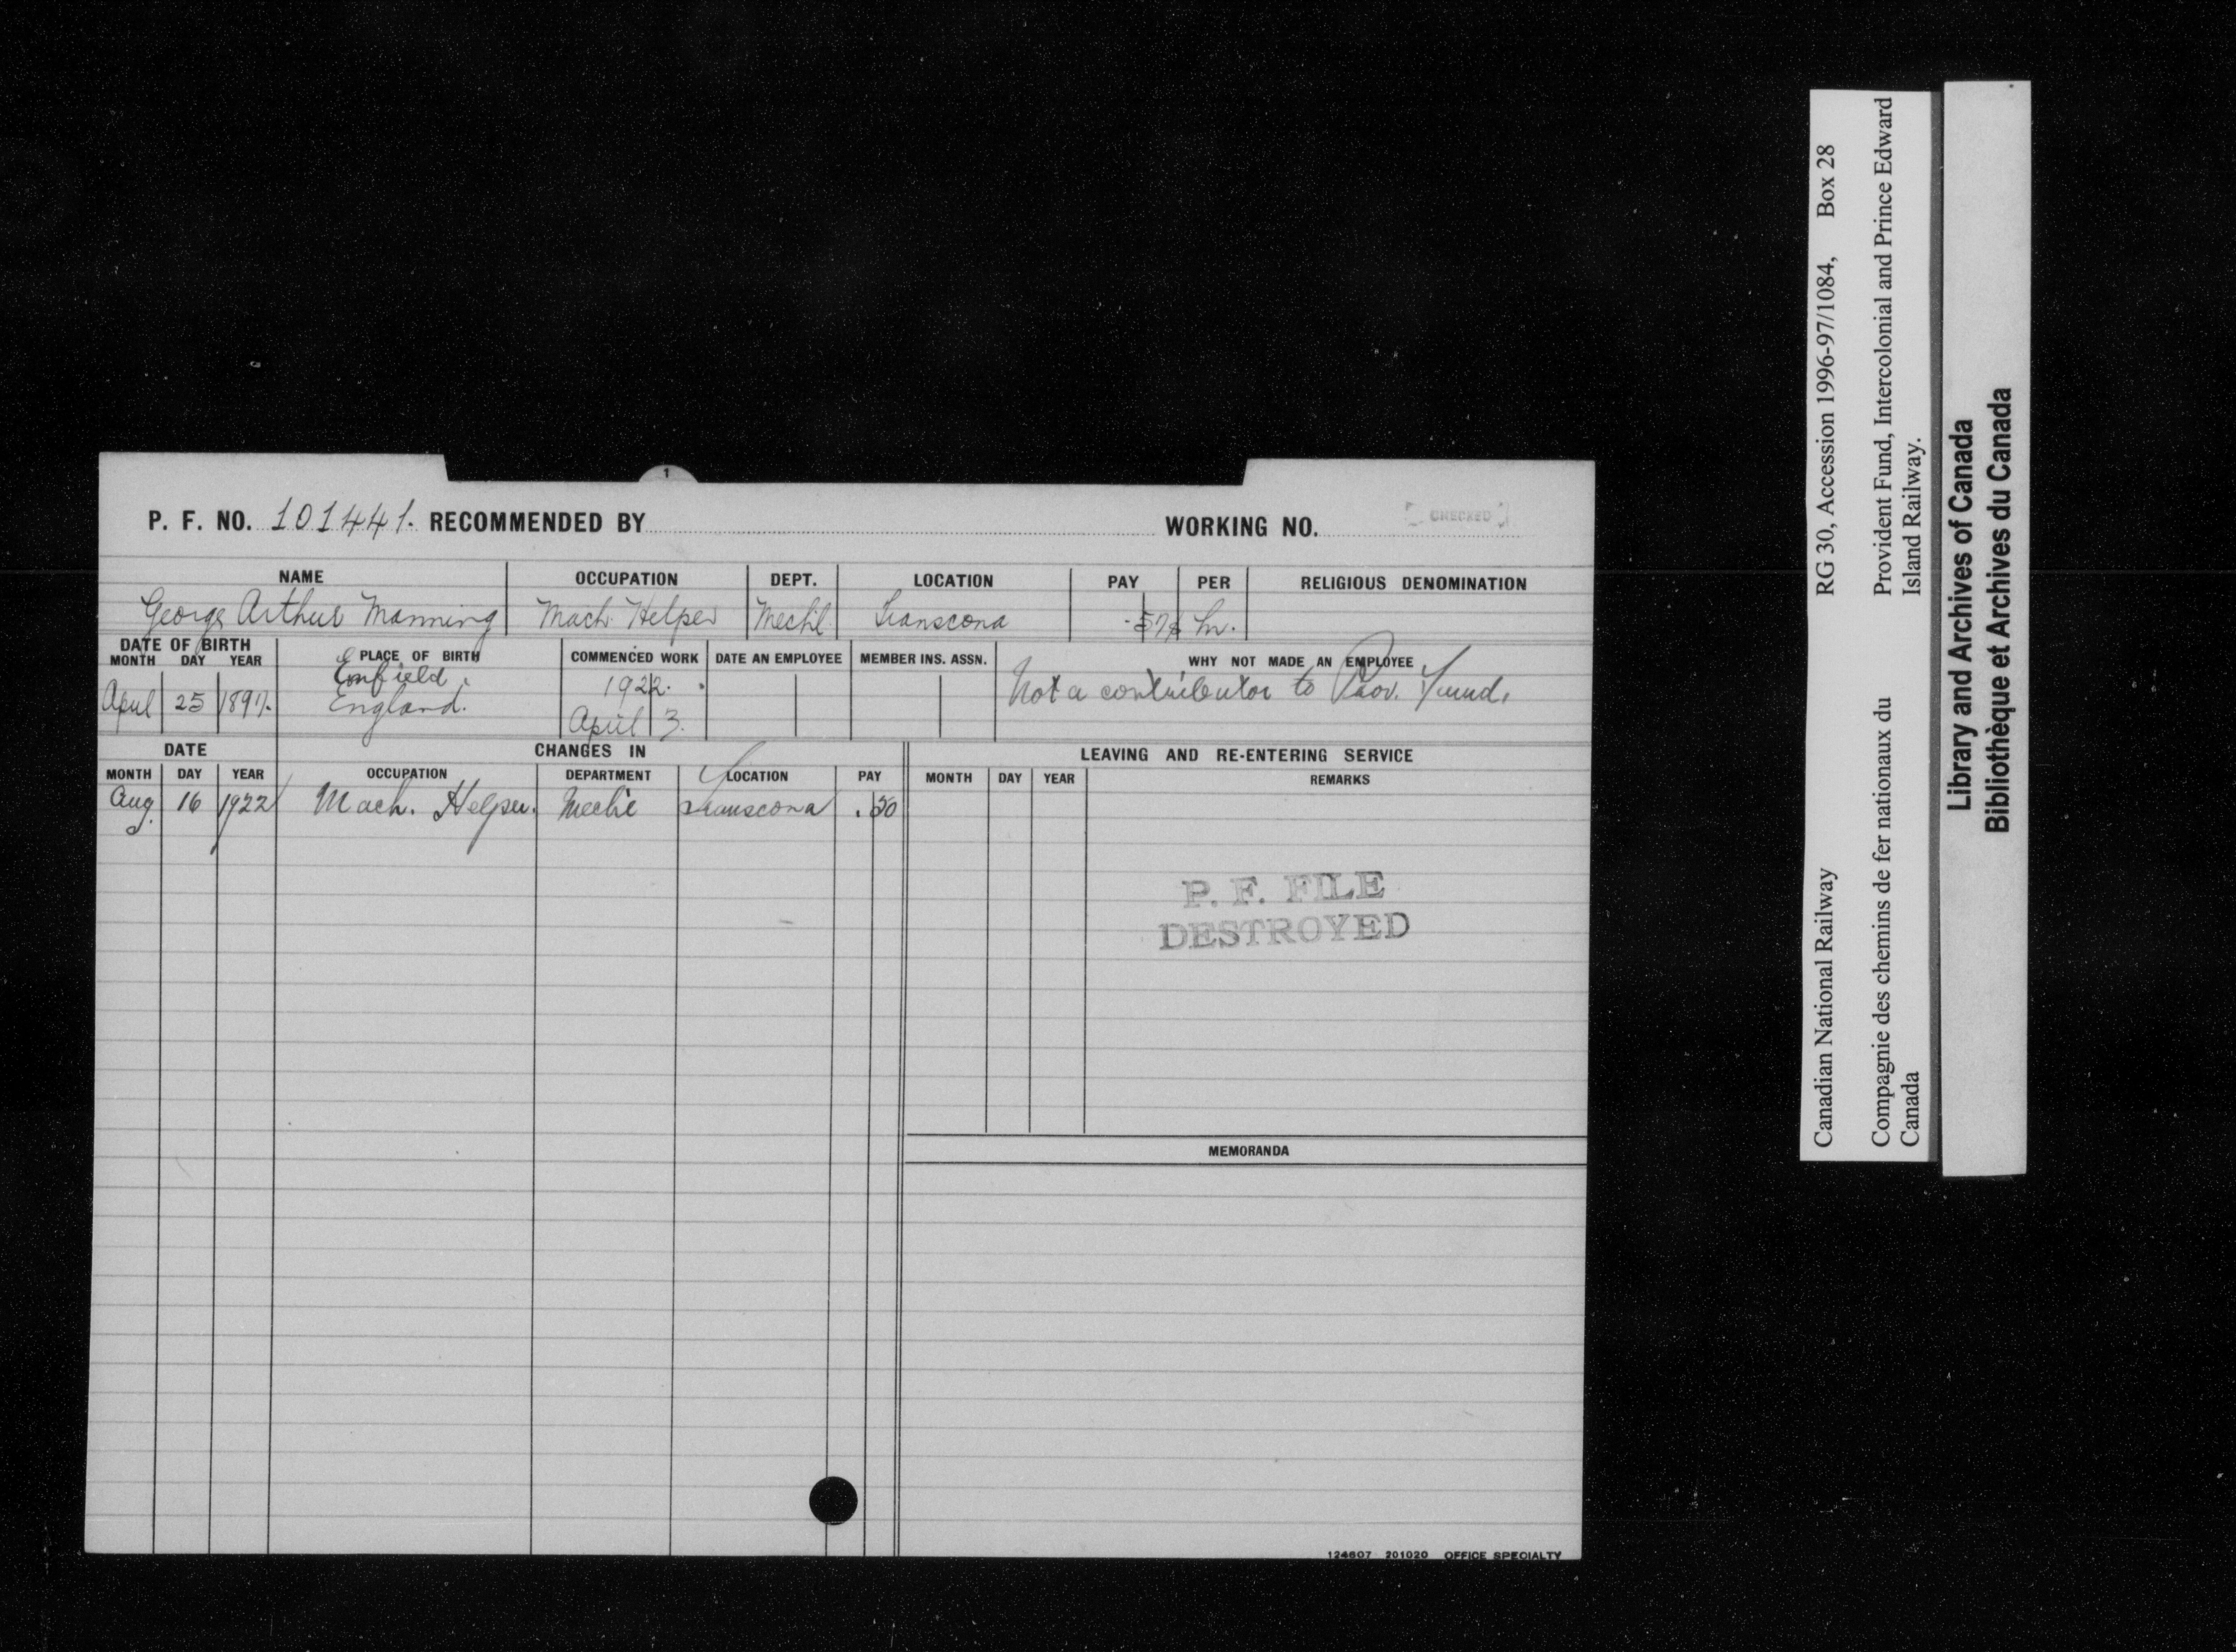 1
P. F. NO. 101441. RECOMMENDED BY WORKING NO. CHECKED
NAME OCCUPATION DEPT. LOCATION PAY PER RELIGIOUS DENOMINATION
George Arthur Manning Mach. Helper Mech'l Transcona hr.
DATE OF BIRTH
MONTH DAY YEAR PLACE OF BIRTH COMMENCED WORK DATE AN EMPLOYEE MEMBER INS. ASSN. WHY NOT MADE AN EMPLOYEE
Enfield, 1922. Not a contributor to Prov. Fund.
April 25 England.
April 3.
DATE CHANGES IN LEAVING AND RE-ENTERING SERVICE
MONTH DAY YEAR OCCUPATION DEPARTMENT LOCATION PAY MONTH DAY YEAR REMARKS
Aug. 16 1922 Mach. Helper. Transcona .50
P. F. FILE
DESTROYED
MEMORANDA
124607 201020 OFFICE SPECIALTY
Canadian National Railway RG 30, Accession 1996-97/1084, Box 28
Compagnie des chemins de fer nationaux du Provident Fund, Intercolonial and Prince Edward
Canada Island Railway.
Library and Archives of Canada
Bibliothèque et Archives du Canada